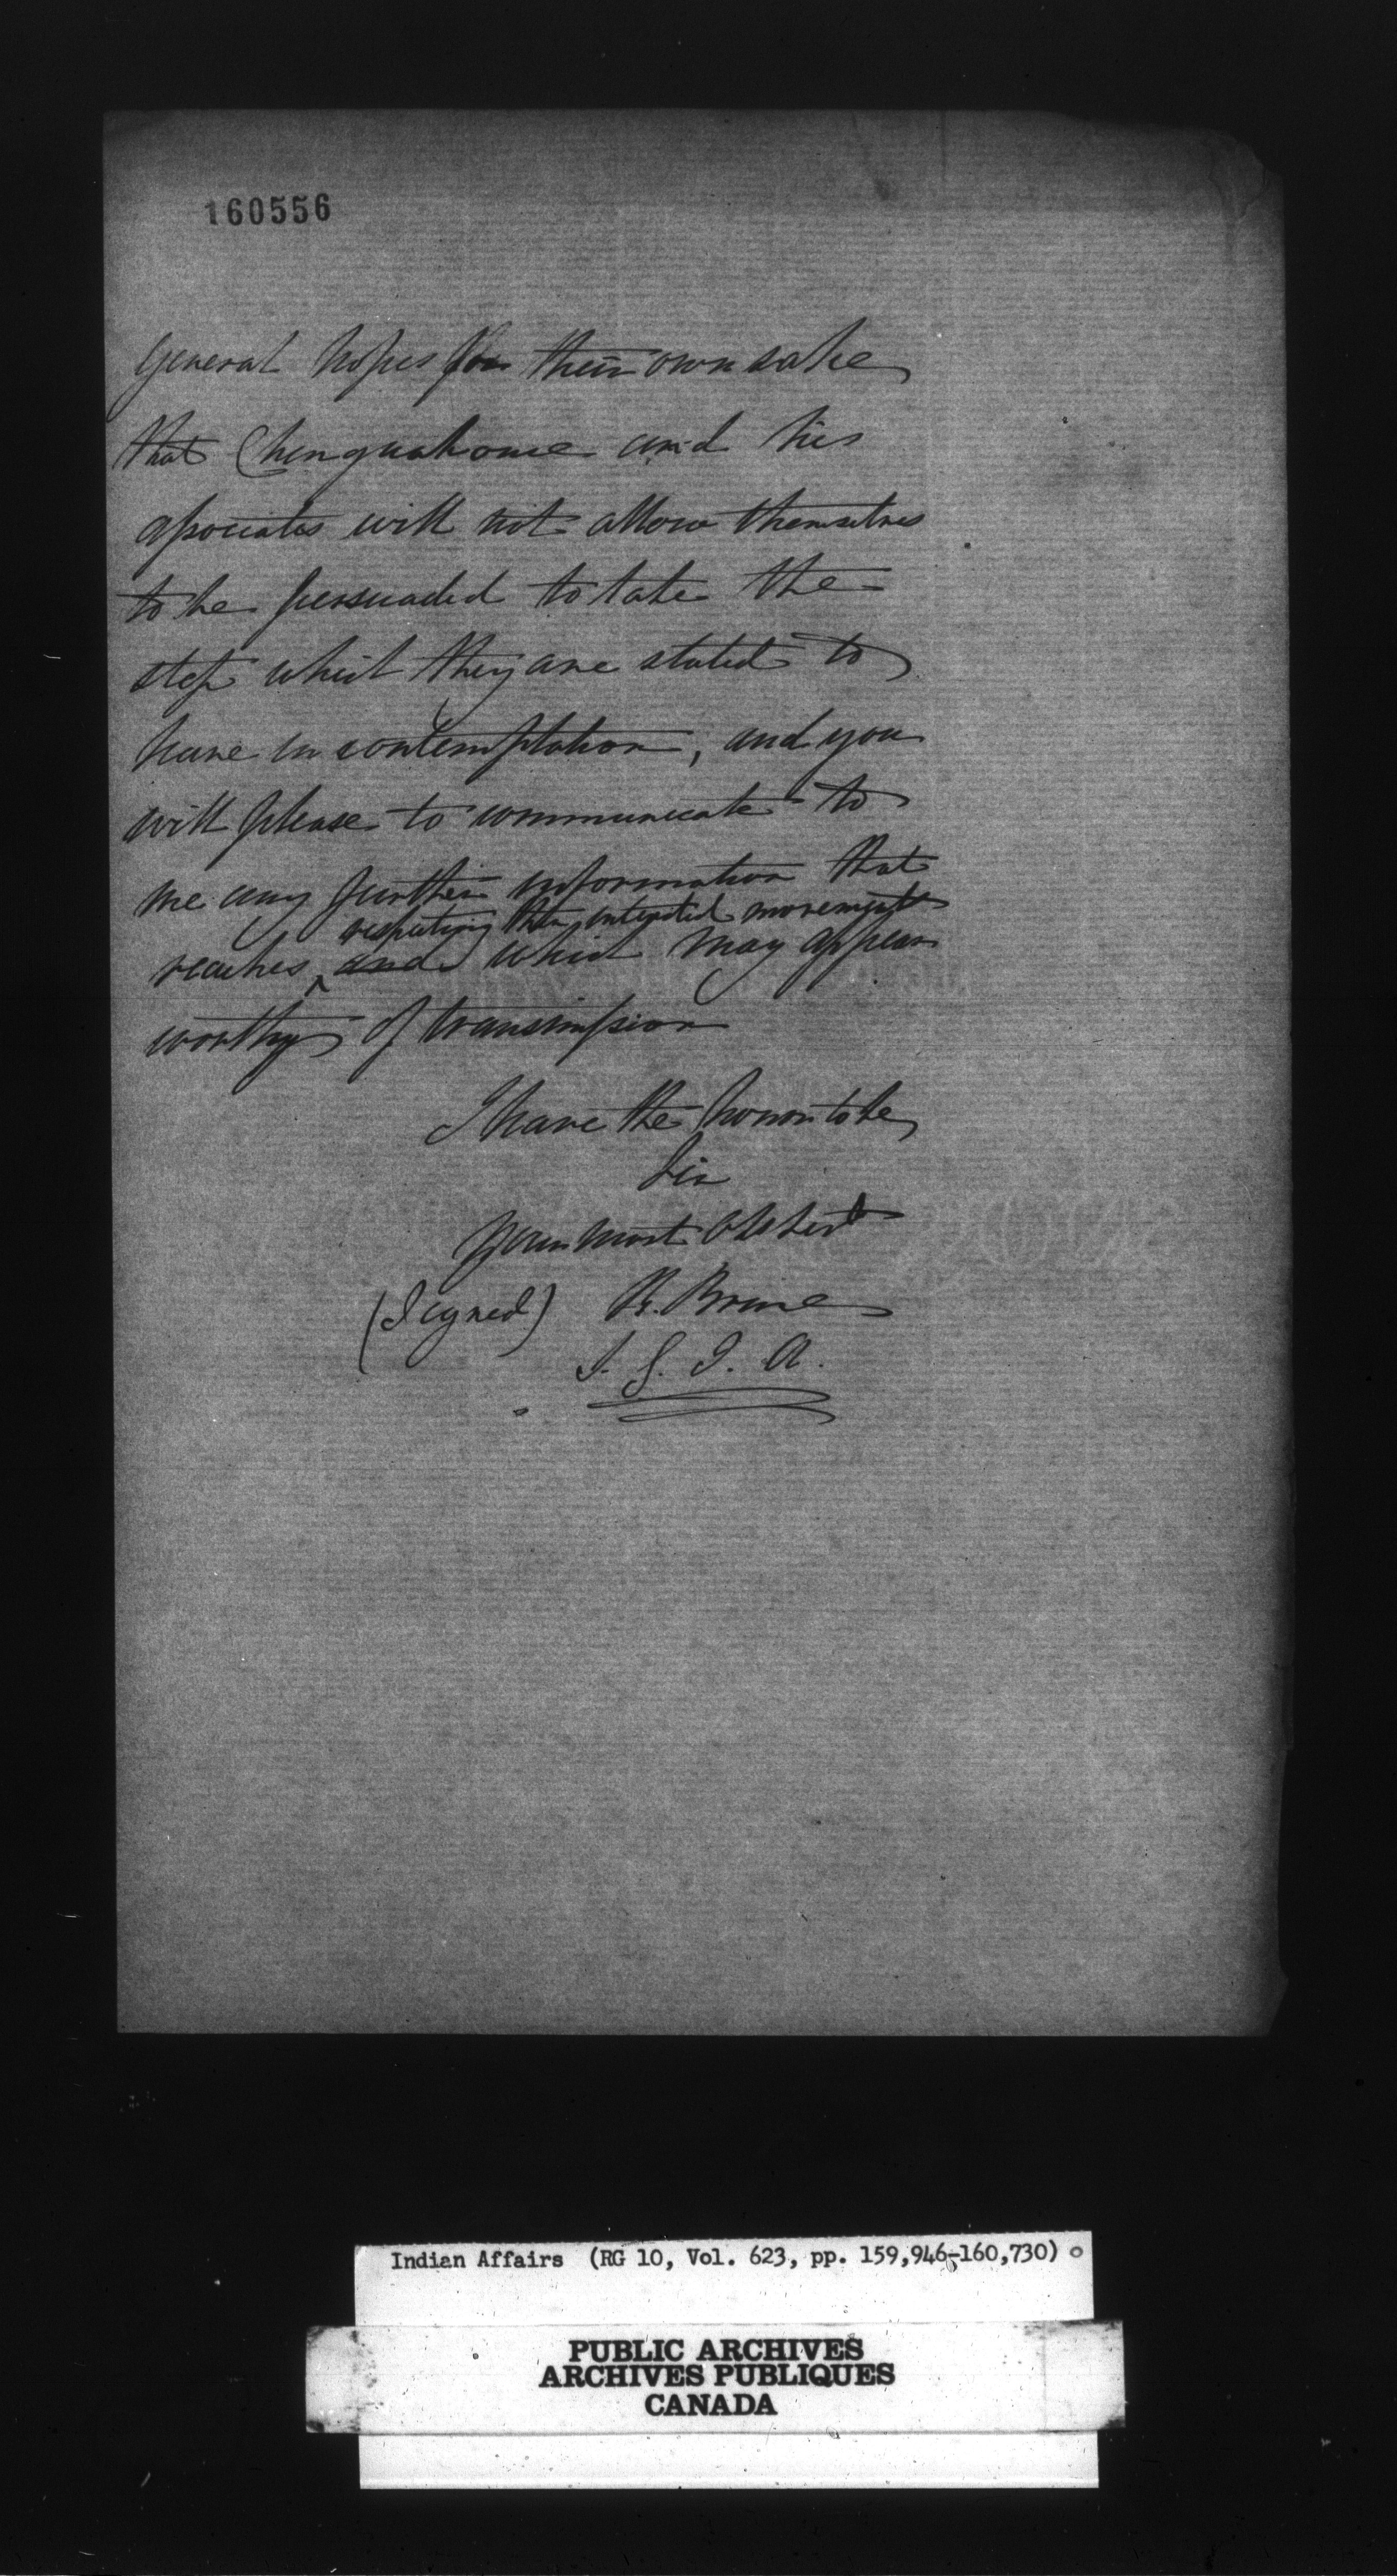 160556
General hopes for their own sake
that Chenguakome and his
associates will not allow themselves
to be persuaded to take the
step which they are stated to
have in contemplation, and you
will please to communicate to
me any further information that
respecting their intended movements
reaches and which may appear
worthy of transmission
I have the honor to be
Sir
Your most Obt Servt
(Signed) R. Bruce
S. G. I. A.
Indian Affairs (RG 10, Vol. 623, pp. 159,946-160,730)
PUBLIC ARCHIVES
ARCHIVES PUBLIQUES
CANADA